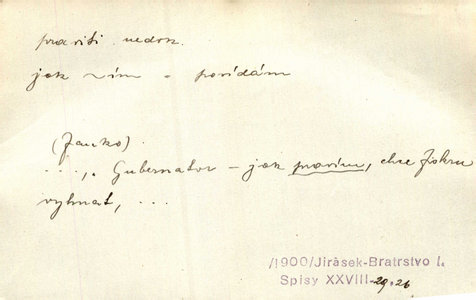 praviti nedok.
jak vím a povídám
(Janko)
...„ Gubernator – jak pravím, chce Jiskru
vyhnat, ...
/1900/Jirásek-Bratrstvo I.
Spisy XXVIII-29.26